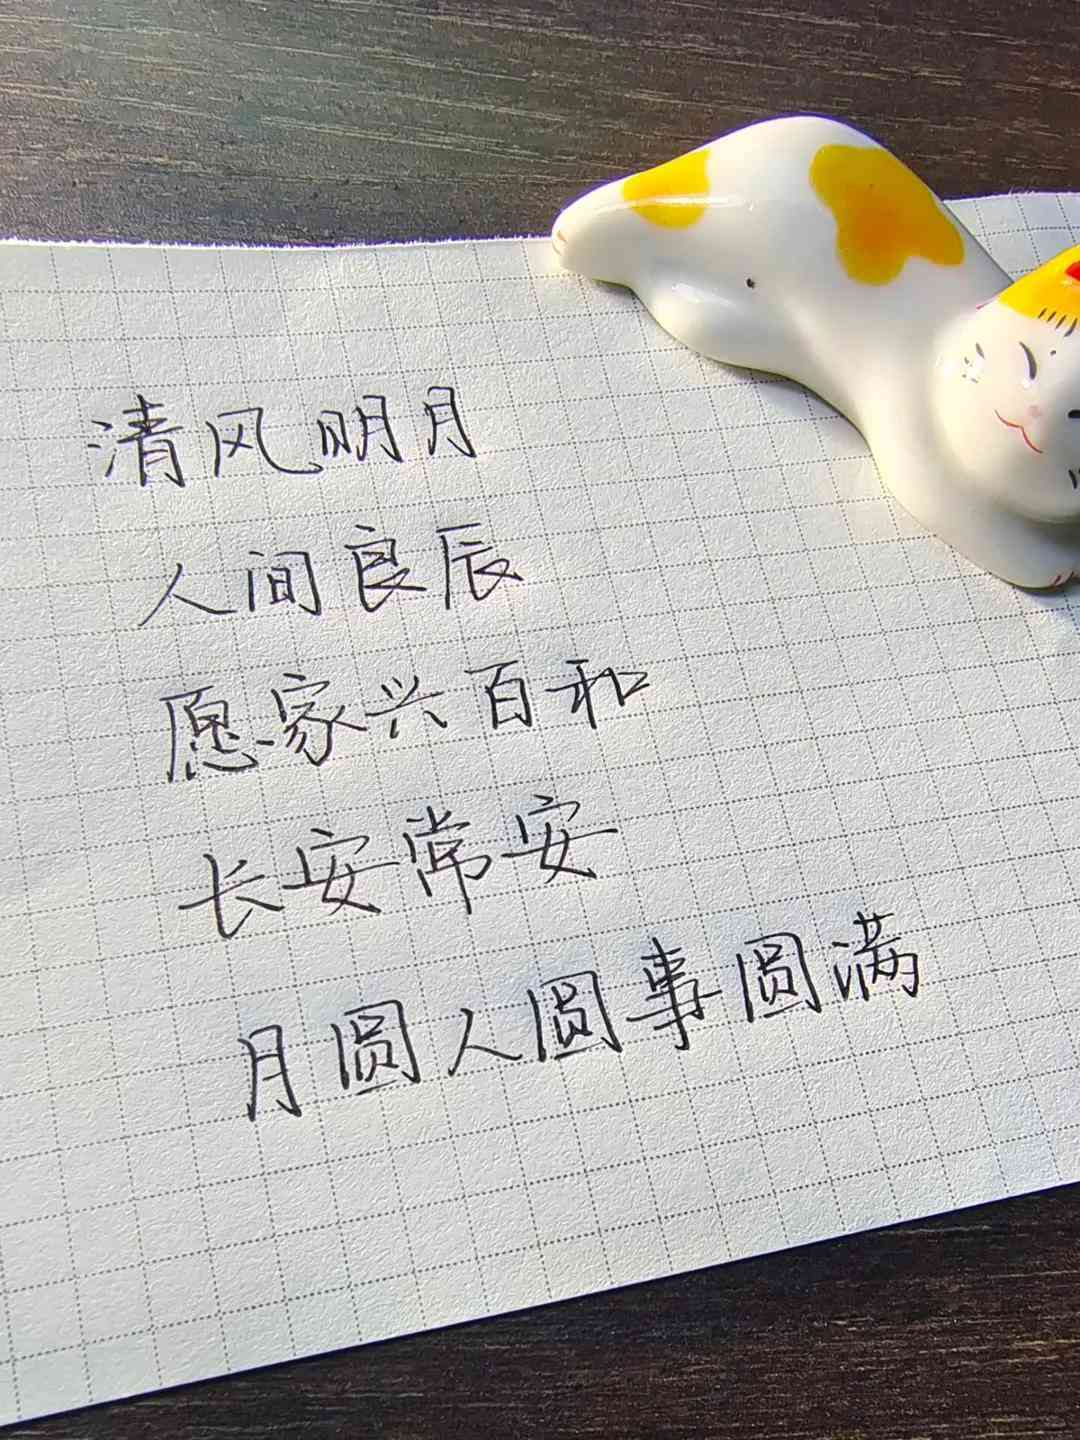 清风明月
人间良辰
愿家兴百和
长安常安
月圆人圆事圆满